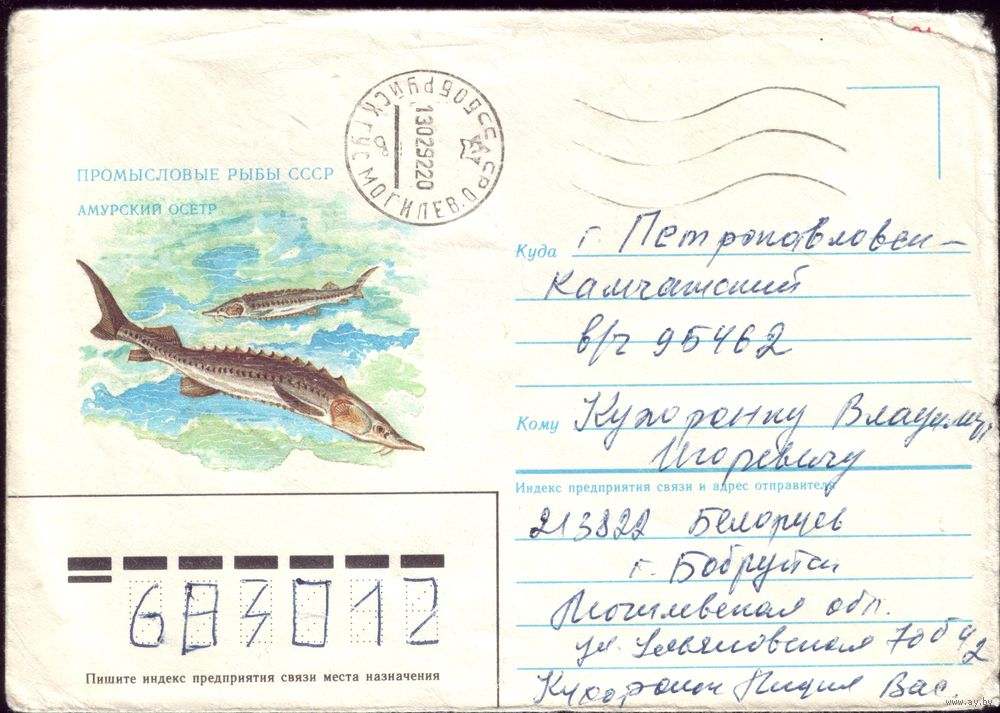 ПРОМЫСЛОВЫЕ РЫБЫ СССР
АМУРСКИЙ ОСЕТР
БОБРУЙСК ГУС МОГИЛЕВ.О
13029220
СССР
Куда г. Петропавловск-
Камчатский
в/ч 95462
Кому Кухоронку Владимир
Игоревичу
Индекс предприятия связи и адрес отправителя
213822 Белорусь
г. Бобруйск
Могилевская обл.
ул. Ульяновская
Лидия Вас.
683012
Пишите индекс предприятия связи места назначения
www.ay.by